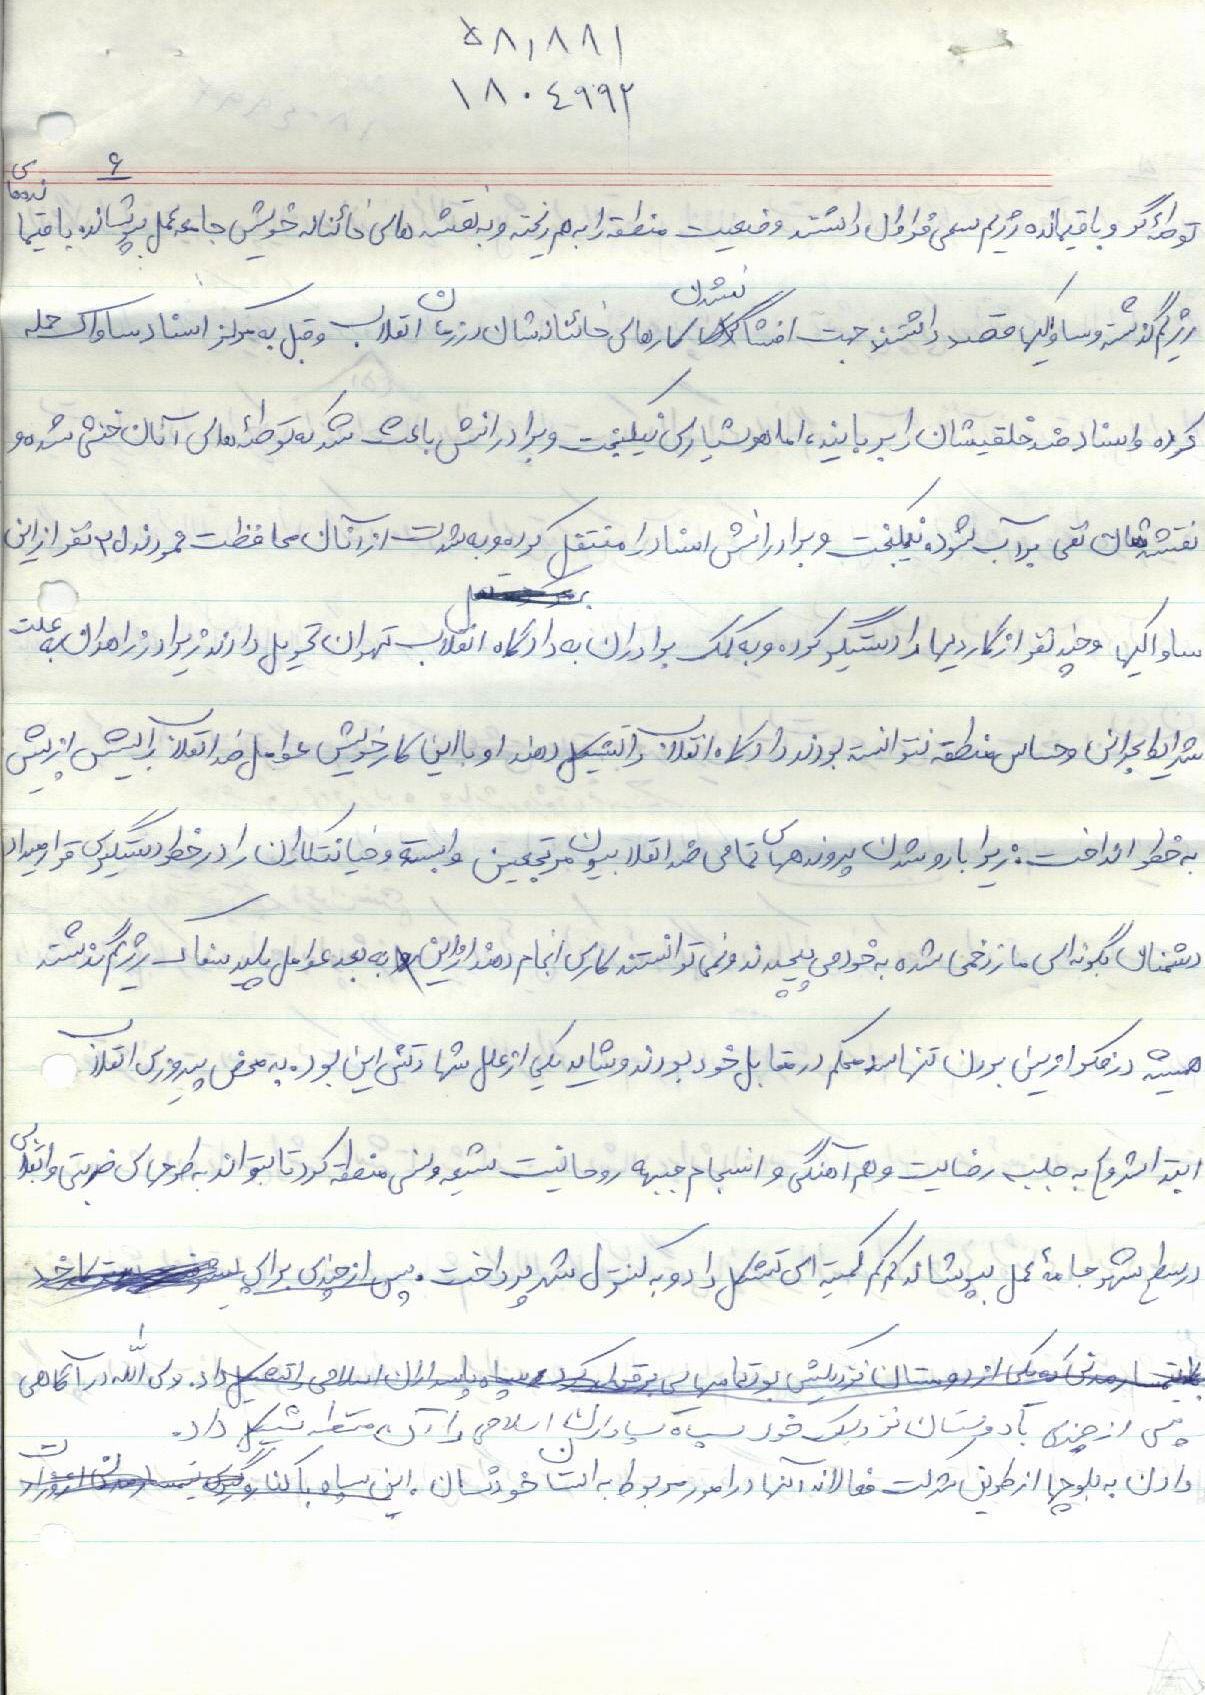 ۵۸,۸۸۱
۱۸۰۴۹۹۲
۶
توطئه‌گر و باقیمانده رژیم سعی فراوان داشتند وضعیت منطقه را بهم ریخته و به نقشه های خائنانه خویش جامه عمل بپوشاند باقیما نده‌های
رژیم گذشته و ساواکیها قصد داشتند جهت افشا نشدن کارهای خائنانه‌شان در زمان انقلاب و قبل به مرکز اسناد ساواک حمله
کرده و اسناد ضد خلقیشان را بربایند، اما هوشیاری نیکبخت و برادرانش باعث شد که توطئه‌های آنان خنثی شده و
نقشه‌شان نقش برآب شود. نیکبخت و برادرانش اسناد را منتقل کرده و به شدت از آنان محافظت نمودند ۳ نفر از این
ساواکیها و چند نفر از گاردیها را دستگیر کرده و به کمک برادران به دادگاه انقلاب تهران تحویل دادند زیرا در زاهدان به علت
شرایط بحرانی و حساس منطقه نتوانسته بودند دادگاه انقلاب را تشکیل دهند او با این کار خویش عوامل ضد انقلاب را بیش از پیش
به خطر انداخت. زیرا با رو شدن پرونده‌های تمامی ضد انقلابیون مرتجعین وابسته و خیانتکاران را در خطر دستگیری قرار میداد
دشمنان بگونه‌ای ما زخمی شده به خود می پیچیدند و نمی‌توانستند کاری انجام دهند از این به بعد عوامل پلید سفاک رژیم گذشته
همیشه در فکر از بین بردن تنها سد محکم در مقابل خود بودند و شاید یکی از علل شهادتش این بود. به محض پیروزی انقلاب
ابتدا شروع به جلب رضایت و هم آهنگی و انسجام جبهه روحانیت شیعه و سنی منطقه کرد تا بتواند به طرحهای ضربتی و انقلابی
در سطح شهر جامه عمل بپوشاند کم کم کمیته ای تشکیل داد و به کنترل شهر پرداخت. پس از چندی برای
که یکی از دوستان نزدیکش بود تماسهایی برقرار کرد و سپاه پاسداران اسلامی را تشکیل داد. وی الله در آگاهی
پس از چندی با دوستان نزدیک خود سپاه پاسداران اسلامی را در آن منطقه تشکیل داد.
دادن به بلوچها از طریق شرکت فعالانه آنها در امور مربوط به استان خودشان. این سپاه با کنار